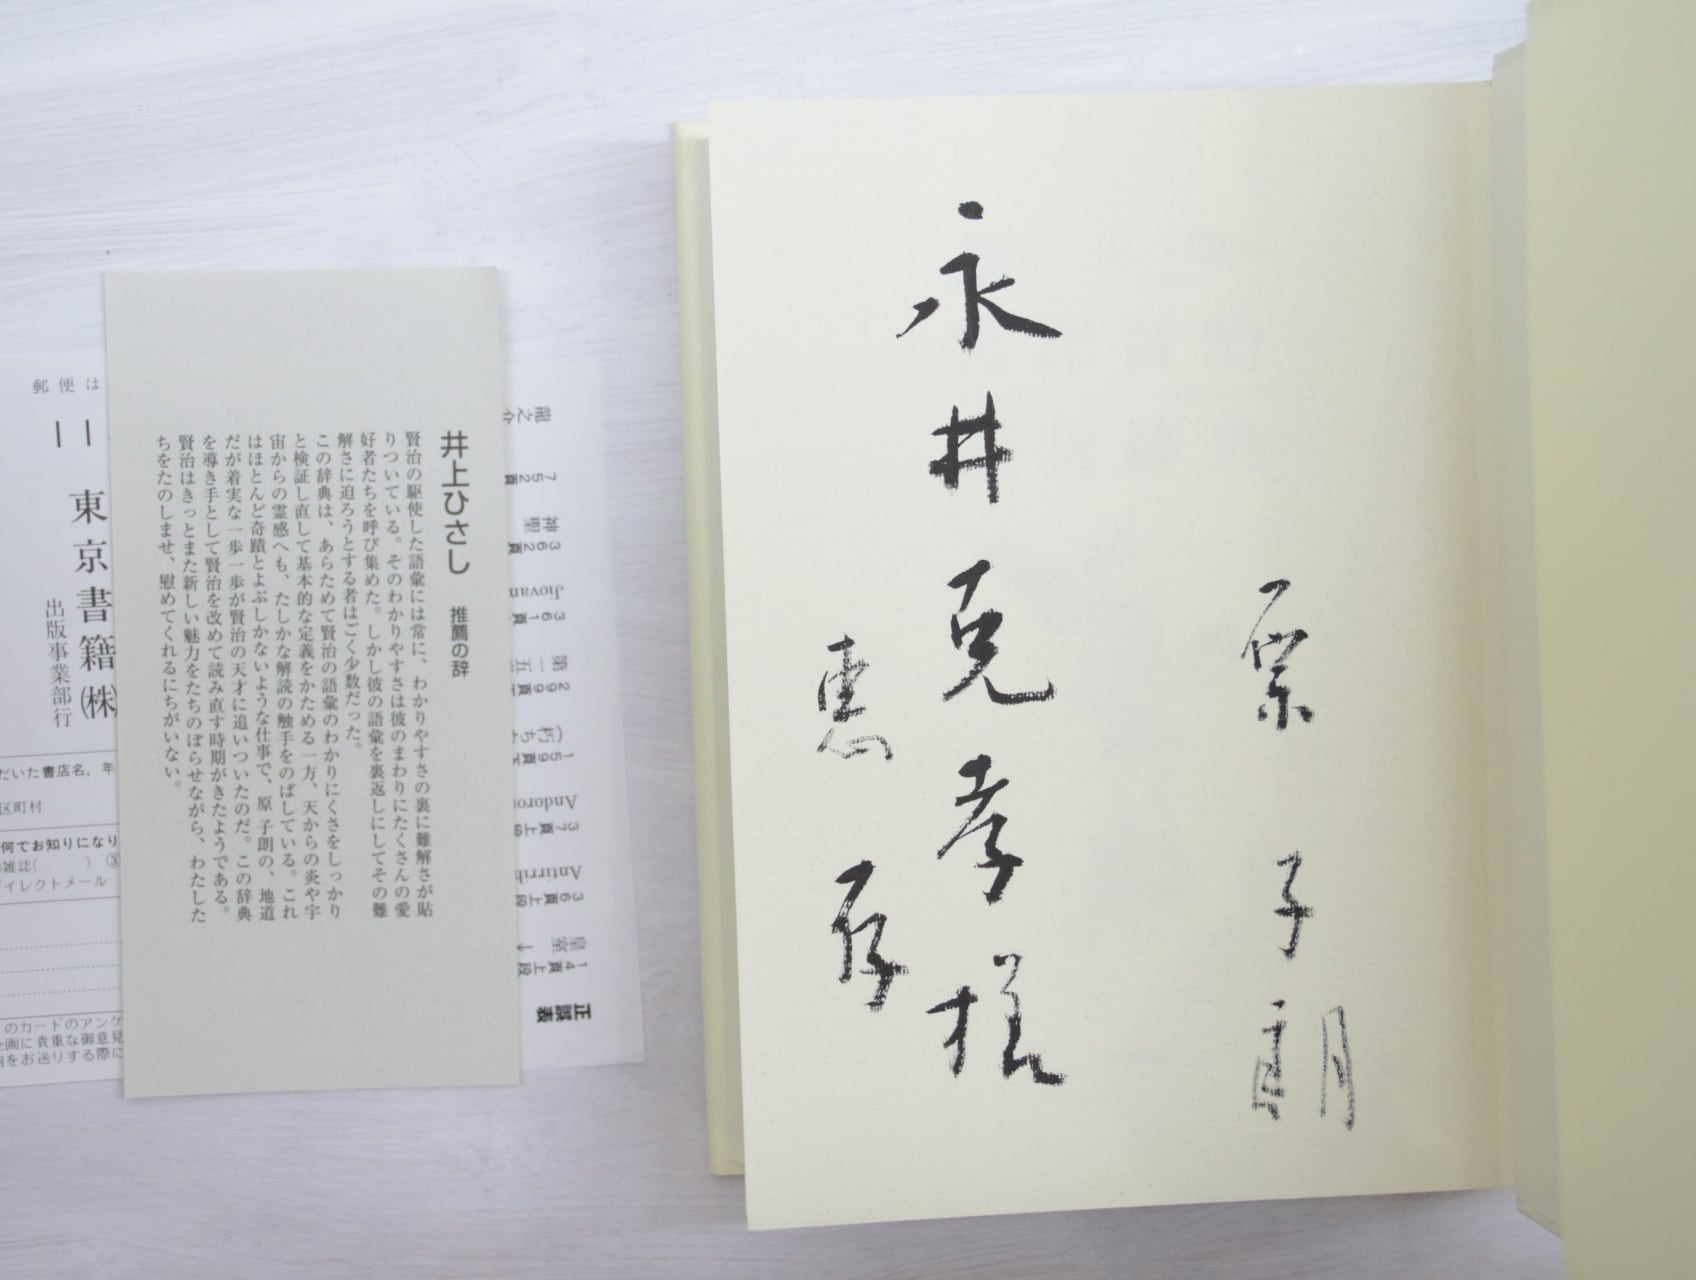 原 子朗
永井克孝様
恵存
井上ひさし 推薦の辞
賢治の駆使した語彙には常に、わかりやすさの裏に難解さが貼
りついている。そのわかりやすさは彼のまわりにたくさんの愛
好者たちを呼び集めた。しかし彼の語彙を裏返しにしてその難
解さに迫ろうとする者はごく少数だった。
この辞典は、あらためて賢治の語彙のわかりにくさをしっかり
と検証し直して基本的な定義をかためる一方、天からの炎や宇
宙からの霊感へも、たしかな解読の触手をのばしている。これ
はほとんど奇蹟とよぶしかないような仕事で、原 子朗の、地道
だが着実な一歩一歩が賢治の天才に追いついたのだ。この辞典
を導き手として賢治を改めて読み直す時期がきたようである。
賢治はきっとまた新しい魅力をたちのぼらせながら、わたした
ちをたのしませ、慰めてくれるにちがいない。
正誤表
14頁上段
皇室 →
36頁上段
Antirrh
37頁上段
Andoro
159頁下
(朽ち
299頁下
第一五
361頁下
Jiovan
362頁
神聖
752頁
龍之介
郵便は
東京書籍(株)
出版事業部行
だいた書店名, 年
区町村
何でお知りになり
雑誌( ) ③
ダイレクトメール
このカードのアンケ
企画に貴重な御意見
内をお送りする際に